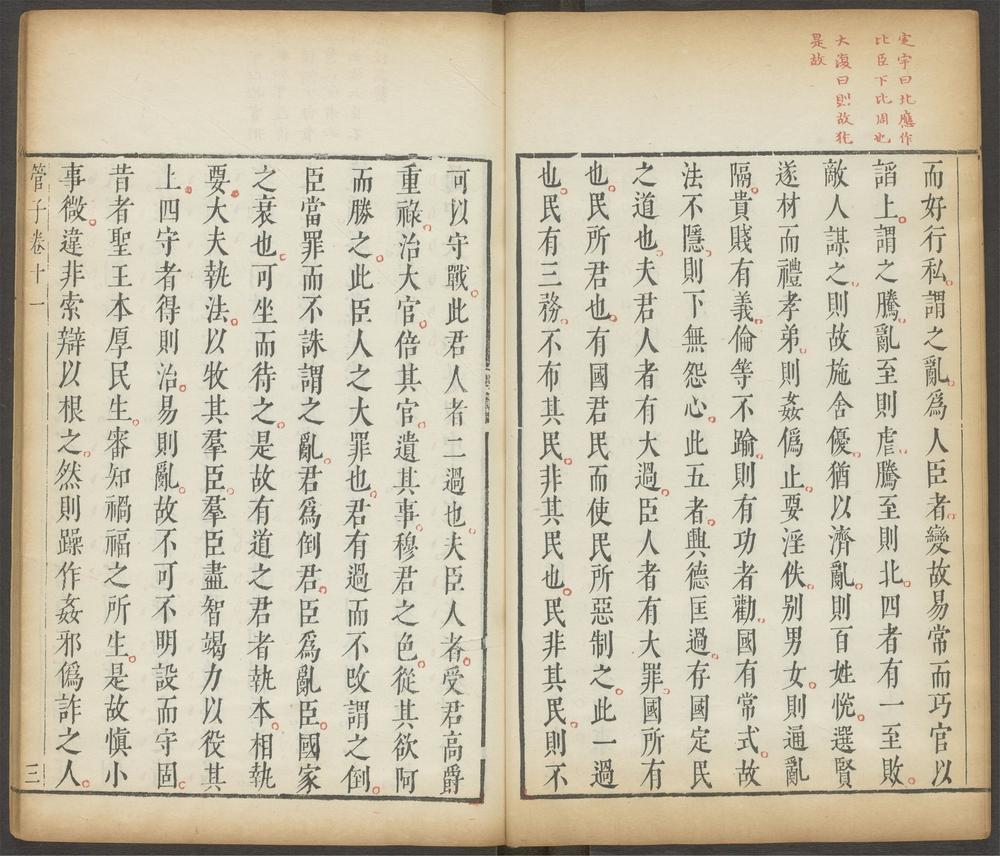 定宇曰北應作
比臣下比周也
大復曰則故疑
是故
而好行私謂之亂爲人臣者變故易常而巧官以
諂上謂之騰亂至則虐騰至則北四者有一至敗
敵人謀之則故施舍優猶以濟亂則百姓悅選賢
遂材而禮孝弟則姦僞止要淫佚别男女則通亂
隔貴賤有義倫等不踰則有功者勸國有常式故
法不隱則下無怨心此五者興德匡過存國定民
之道也夫君人者有大過臣人者有大罪國所有
也民所君也有國君民而使民所惡制之此一過
也民有三務不布其民非其民也民非其民則不
可以守戰此君人者二過也夫臣人者受君高爵
重祿治大官倍其官遺其事穆君之色從其欲阿
而勝之此臣人之大罪也君有過而不攺謂之倒
臣當罪而不誅謂之亂君爲倒君臣爲亂臣國家
之衰也可坐而待之是故有道之君者執本相執
要大夫執法以牧其羣臣羣臣盡智竭力以役其
上四守者得則治易則亂故不可不明設而守固
昔者聖王本厚民生審知禍福之所生是故愼小
事微違非索辯以根之然則躁作姦邪僞詐之人
管子卷十一
三